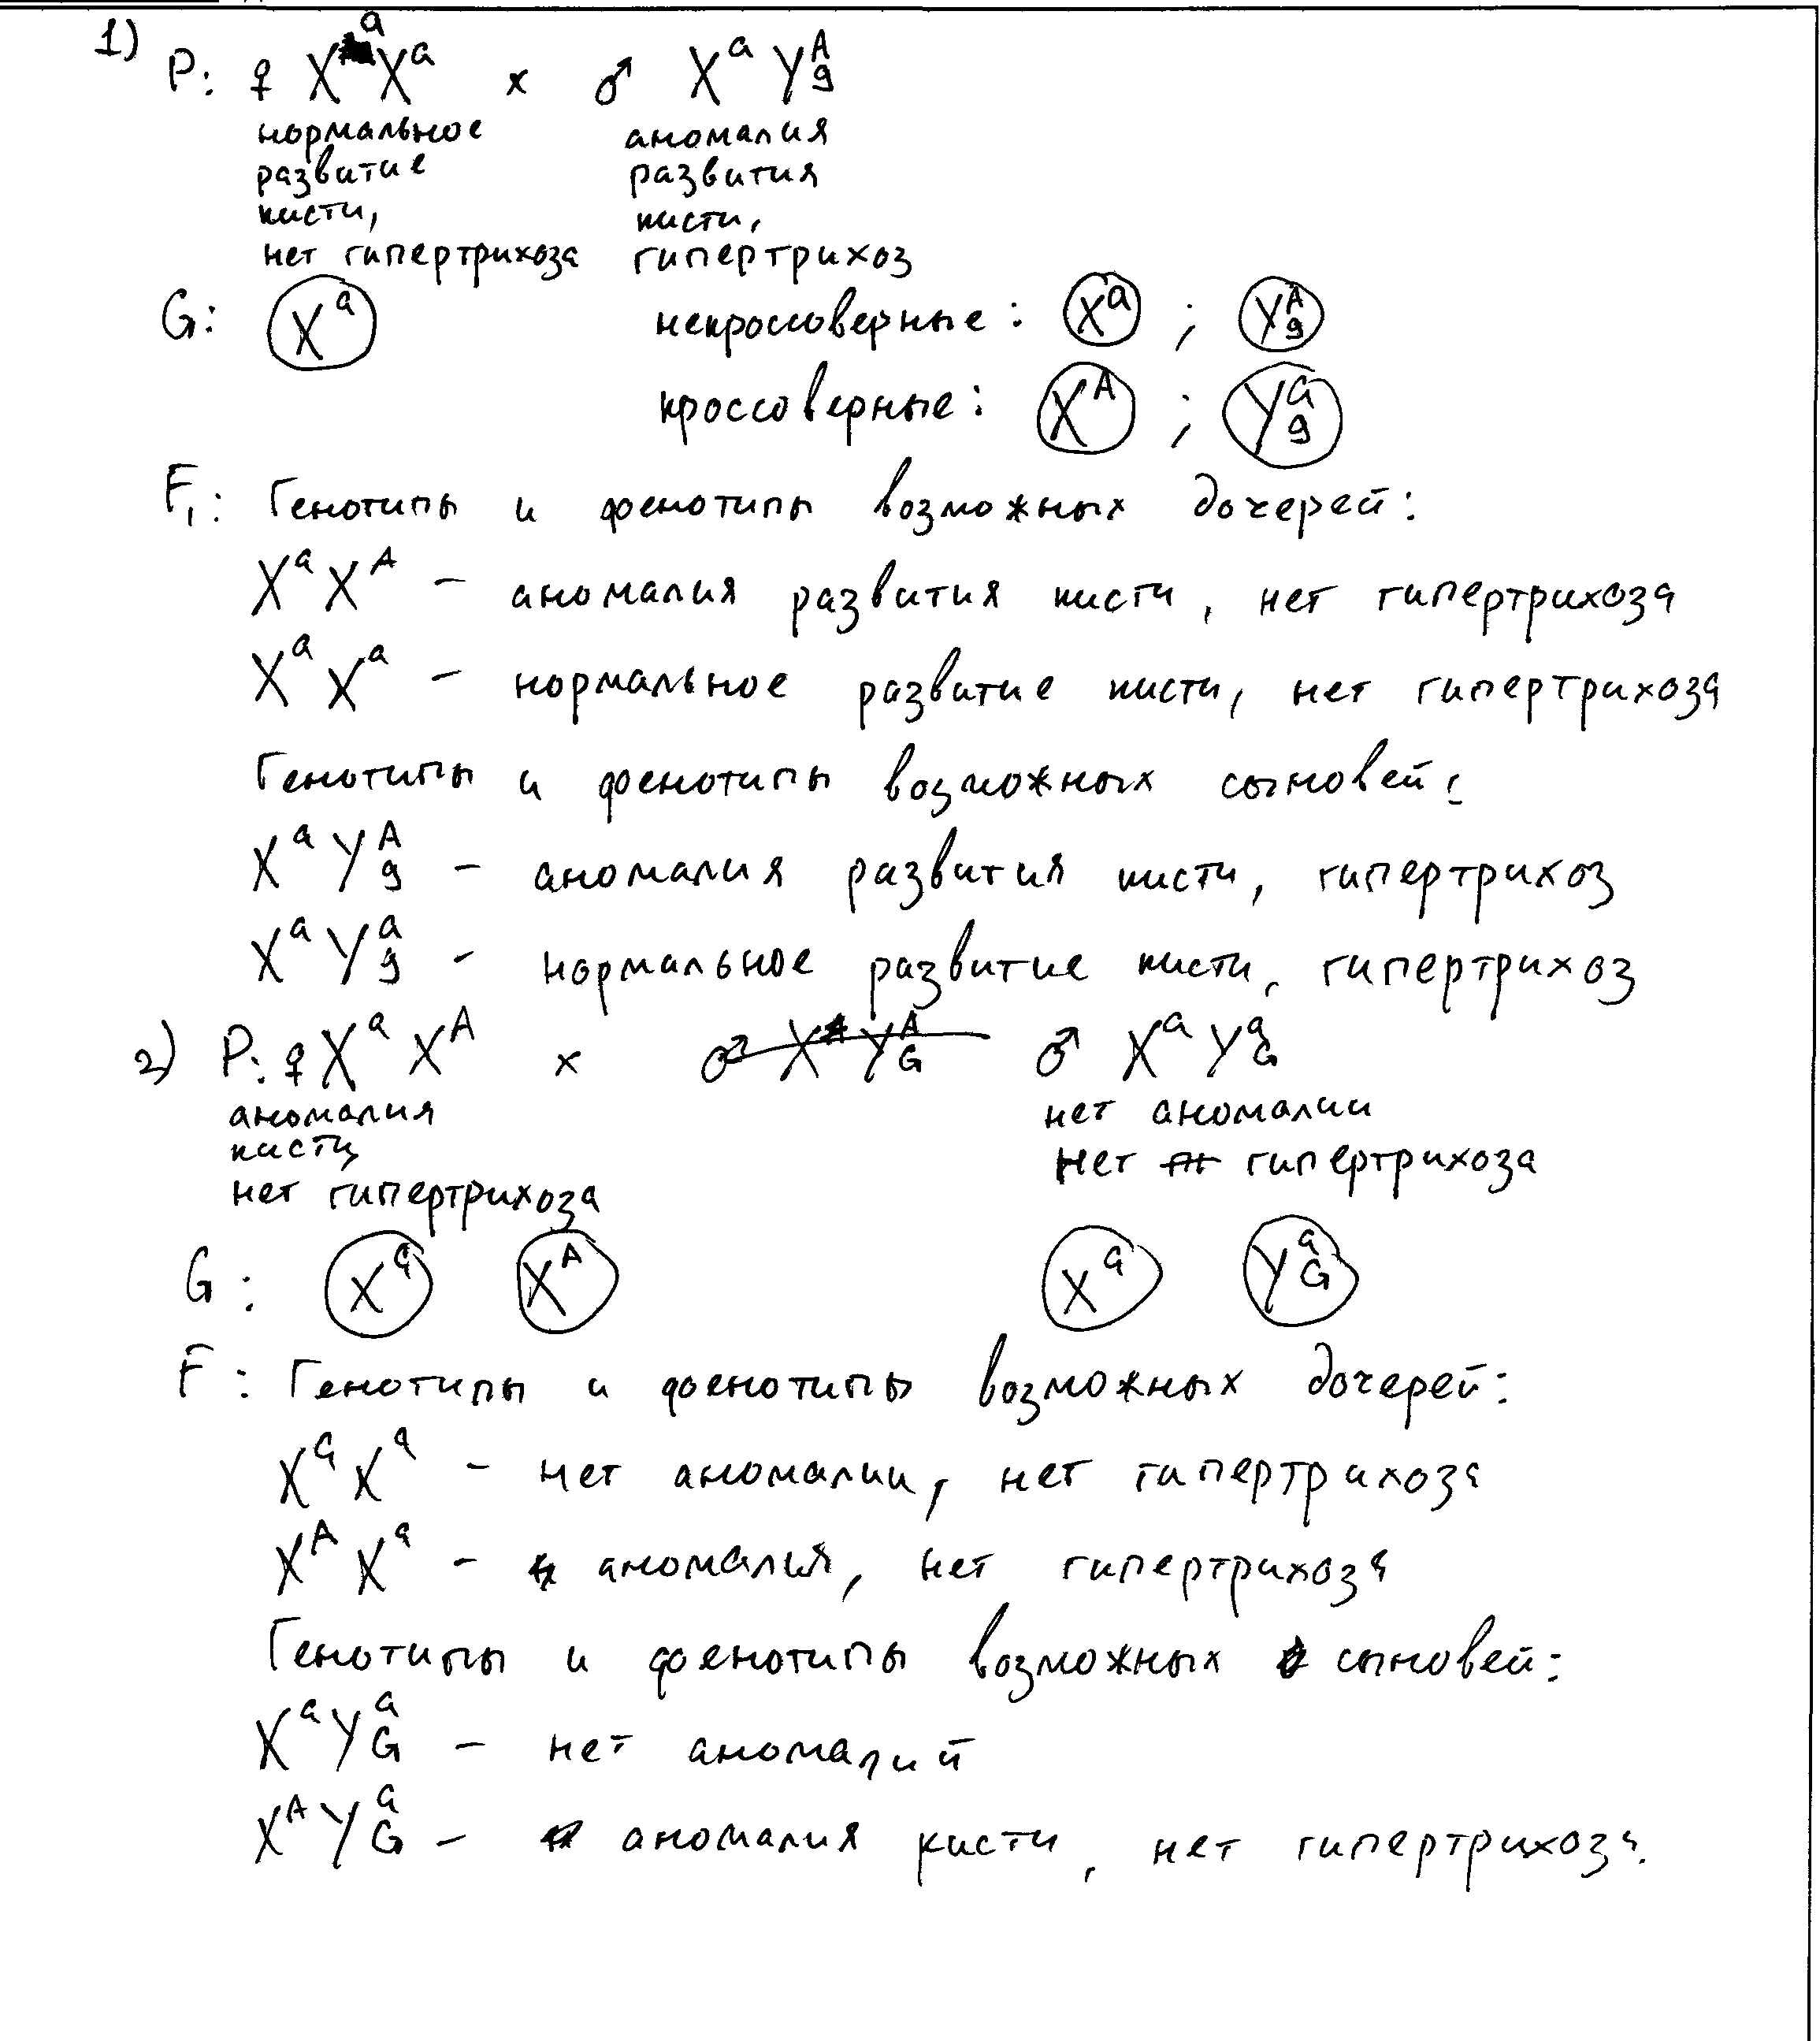 1)
P: ♀ XᵃXᵃ × ♂ Xᵃ Yᴬg
нормальное аномалия
развитие развития
кисти, кисти,
нет гипертрихоза гипертрихоз
G: Xᵃ некроссоверные: Xᵃ ; Yᴬg
кроссоверные: Xᴬ ; Yᵃg
F₁: Генотипы и фенотипы возможных дочерей:
XᵃXᴬ – аномалия развития кисти, нет гипертрихоза
XᵃXᵃ – нормальное развитие кисти, нет гипертрихоза
Генотипы и фенотипы возможных сыновей:
XᵃYᴬg – аномалия развития кисти, гипертрихоз
XᵃYᵃg – нормальное развитие кисти, гипертрихоз
2) P: ♀ Xᵃ Xᴬ × ♂ Xᵃ YᵃG
аномалия нет аномалии
кисти, нет гипертрихоза
нет гипертрихоза
G: Xᵃ Xᴬ Xᵃ YᵃG
F: Генотипы и фенотипы возможных дочерей:
XᵃXᵃ – нет аномалии, нет гипертрихоза
XᴬXᵃ – аномалия, нет гипертрихоза
Генотипы и фенотипы возможных сыновей:
XᵃYᵃG – нет аномалий
XᴬYᵃG – аномалия кисти, нет гипертрихоза.